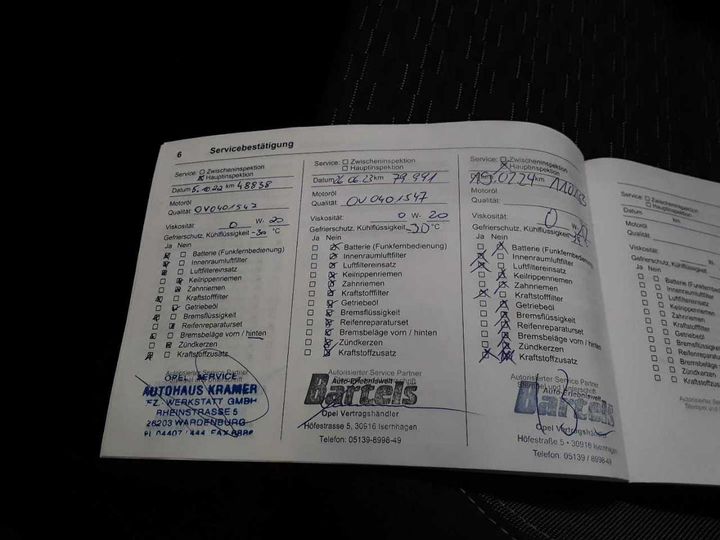 6 Servicebestätigung
Service: Zwischeninspektion
Hauptinspektion
Datum 5.10.22 km 48838
Motoröl
Qualität: OV0401547
Viskosität: 0 W- 20
Gefrierschutz, Kühlflüssigkeit -30 °C
Ja Nein
Batterie (Funkfernbedienung)
Innenraumluftfilter
Luftfiltereinsatz
Keilrippenriemen
Zahnriemen
Kraftstofffilter
Getriebeöl
Bremsflüssigkeit
Reifenreparaturset
Bremsbeläge vorn / hinten
Zündkerzen
Kraftstoffzusatz
Autorisierter Service Partner
OPEL SERVICE
AUTOHAUS KRAMER
FZ. WERKSTATT GMBH
RHEINSTRASSE 5
26203 WARDENBURG
Service: Zwischeninspektion
Hauptinspektion
Datum 26.06.23 km 79 991
Motoröl
Qualität: OV0401547
Viskosität: 0 W- 20
Gefrierschutz, Kühlflüssigkeit -30 °C
Ja Nein
Batterie (Funkfernbedienung)
Innenraumluftfilter
Luftfiltereinsatz
Keilrippenriemen
Zahnriemen
Kraftstofffilter
Getriebeöl
Bremsflüssigkeit
Reifenreparaturset
Bremsbeläge vorn / hinten
Zündkerzen
Kraftstoffzusatz
Autorisierter Service Partner
Auto-Erlebniswelt
Bartels
Opel Vertragshändler
Höfestraße 5, 30916 Isernhagen
Telefon: 05139-8998-49
Service: Zwischeninspektion
Hauptinspektion
km
Motoröl
Qualität:
Viskosität: 0 W-
Gefrierschutz, Kühlflüssigkeit
Ja Nein
Batterie (Funkfernbedienung)
Innenraumluftfilter
Luftfiltereinsatz
Keilrippenriemen
Zahnriemen
Kraftstofffilter
Getriebeöl
Bremsflüssigkeit
Reifenreparaturset
Bremsbeläge vorn / hinten
Zündkerzen
Kraftstoffzusatz
Autorisierter Service Partner
Auto-Erlebniswelt
Bartels
Opel Vertragshändler
Höfestraße 5 • 30916 Isernhagen
Telefon: 05139 / 8998-49
Service: Zwischeninspektion
Hauptinspektion
Datum km
Motoröl
Qualität:
Viskosität:
Gefrierschutz, Kühlflüssigkeit
Ja Nein
Batterie (Funkfernbedienung)
Innenraumluftfilter
Luftfiltereinsatz
Keilrippenriemen
Zahnriemen
Kraftstofffilter
Getriebeöl
Bremsflüssigkeit
Reifenreparaturset
Bremsbeläge vorn
Zündkerzen
Kraftstoffzusatz